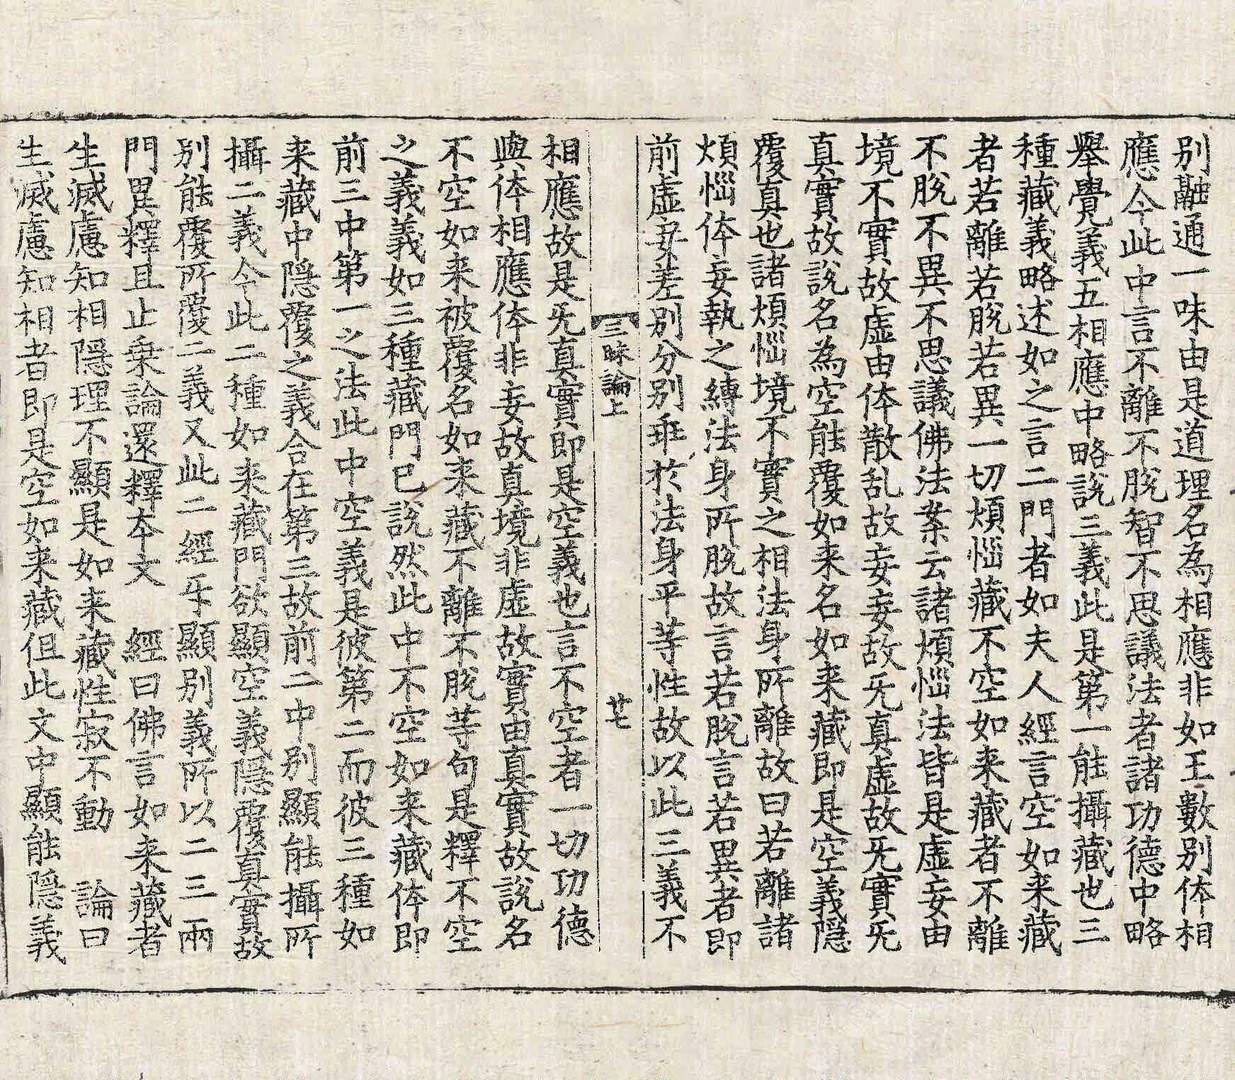 别融通一味由是道理名為相應非如王數别体相
應今此中言不離不脫智不思議法者諸功德中略
舉覺義五相應中略說三義此是第一能攝藏也三
種藏義略述如之言二門者如夫人經言空如来藏
者若離若脫若異一切煩惱藏不空如来藏者不離
不脫不異不思議佛法案云諸煩惱法皆是虛妄由
境不實故虛由体散乱故妄妄故旡真虛故旡實旡
真實故說名為空能覆如来名如来藏即是空義隱
覆真也諸煩惱境不實之相法身所離故曰若離諸
煩惱体妄執之縛法身所脫故言若脫言若異者即
前虛妄差别分别乖於法身平等性故以此三義不
三昧論上
廿七
相應故是旡真實即是空義也言不空者一切功德
與体相應体非妄故真境非虛故實由真實故說名
不空如来被覆名如来藏不離不脫等句是釋不空
之義義如三種藏門已說然此中不空如来藏体即
前三中第一之法此中空義是彼第二而彼三種如
来藏中隱覆之義合在第三故前二中别顯能攝所
攝二義今此二種如来藏門欲顯空義隱覆真實故
别能覆所覆二義又此二經㸦顯别義所以二三兩
門異釋且止乗論還釋夲文　經曰佛言如来藏者
生滅慮知相隱理不顯是如来藏性寂不動　論曰
生滅慮知相者即是空如来藏但此文中顯能隱義